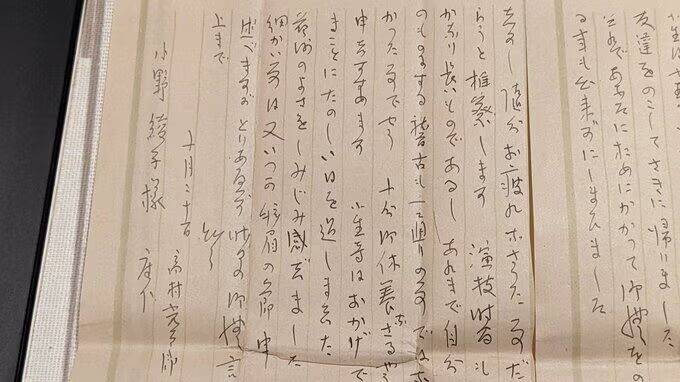 友達をのこしてさきに帰りました
それであなたにためにかかって御礼をの
る事も出来ずにしまひました
随分お疲れなさった事だ
らうと推察します 演技時間も
かなり長いものであるし あれまで自分
のものにする稽古も一ト通りの事ではな
かった事でせう 十分御休養なさるやう
申すすめます 小生等はおかげで
まことにたのしい日を過しました
芸術のよさをしみじみ感じました
細かい事は又いつか拝眉の節申
述べますが とりあへず 御礼言
上まで
高村光太郎
小野綾子様